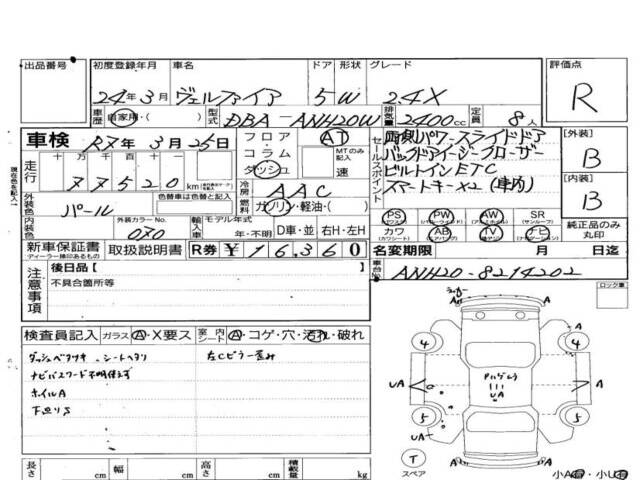 出品番号 初度登録年月 車名 ドア 形状 グレード 評価点
24年3月 ヴェルファイア 5 W 2.4X R
車歴 自家用・( ) 型式 DBA-ANH20W 排気量 2400cc 定員 8人
車検 R7年3月25日 フロア・コラム・ダッシュ AT MTのみ記入 速
セールスポイント 両側パワースライドドア
バックドアイージークローザー
ビルトインETC
スマートキー×2(車内)
[外装] B
[内装] B
走行 十万 万 千 百 十 77520 km
現在色を記入
外装色 パール 色替車は色替と記入 冷房 AAC
燃料 ガソリン・軽油・( )
内装色 外装カラーNo. 070 輸入車 モデル年式 年・不明 D車・並 右H・左H
PS PW AW SR
(パワステ) (パワーウィンド) (サンルーフ)
カワ AB TV ナビ
(カワシート) (エアバッグ)
純正品のみ丸印
新車保証書 取扱説明書 R券 ¥16,360
ディーラー捺印あるもの
名変期限 月 日迄
車台No. ANH20-8214202
注意事項 後日品[ ]
不具合箇所等
ロック車
検査員記入 ガラス A・X要ス 室内 シート A・コゲ・穴・汚れ・破れ
ダッシュベタツキ シートヘタリ 左Cピラー歪み
ナビパスワード不明使えず
ホイルA
下廻りS
A A
4 4
UA A
UA
5 5
UA
T
スペア
A A
小A有・小U有
長さ cm 幅 cm 高さ cm 積載量 kg